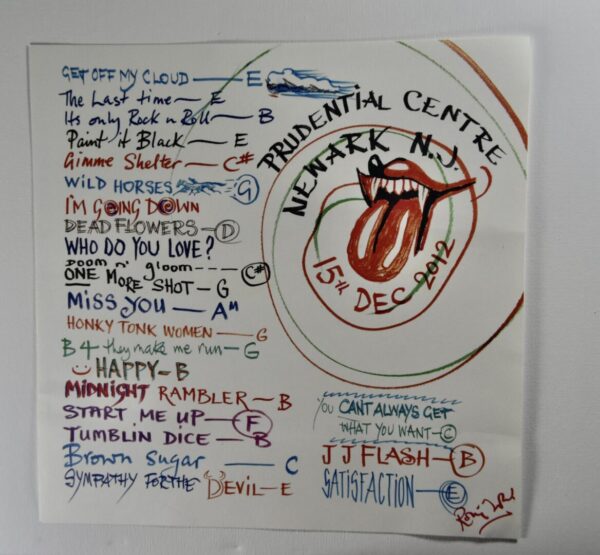 GET OFF MY CLOUD — E
The Last time — E
Its only Rock n Roll — B
Paint it Black — E
Gimme Shelter — C#
WILD HORSES — G
I'M GOING DOWN
DEAD FLOWERS — D
WHO DO YOU LOVE?
DOOM n' gloom ---- C#
ONE MORE SHOT — G
MISS YOU — AM
HONKY TONK WOMEN — G
B4 they make me run — G
HAPPY — B
MIDNIGHT RAMBLER — B
START ME UP — F
TUMBLIN DICE — B
Brown Sugar — C
SYMPATHY FOR THE DEVIL — E
PRUDENTIAL CENTRE
NEWARK N.J.
15TH DEC 2012
YOU CANT ALWAYS GET
WHAT YOU WANT — C
JJ FLASH — B
SATISFACTION — E